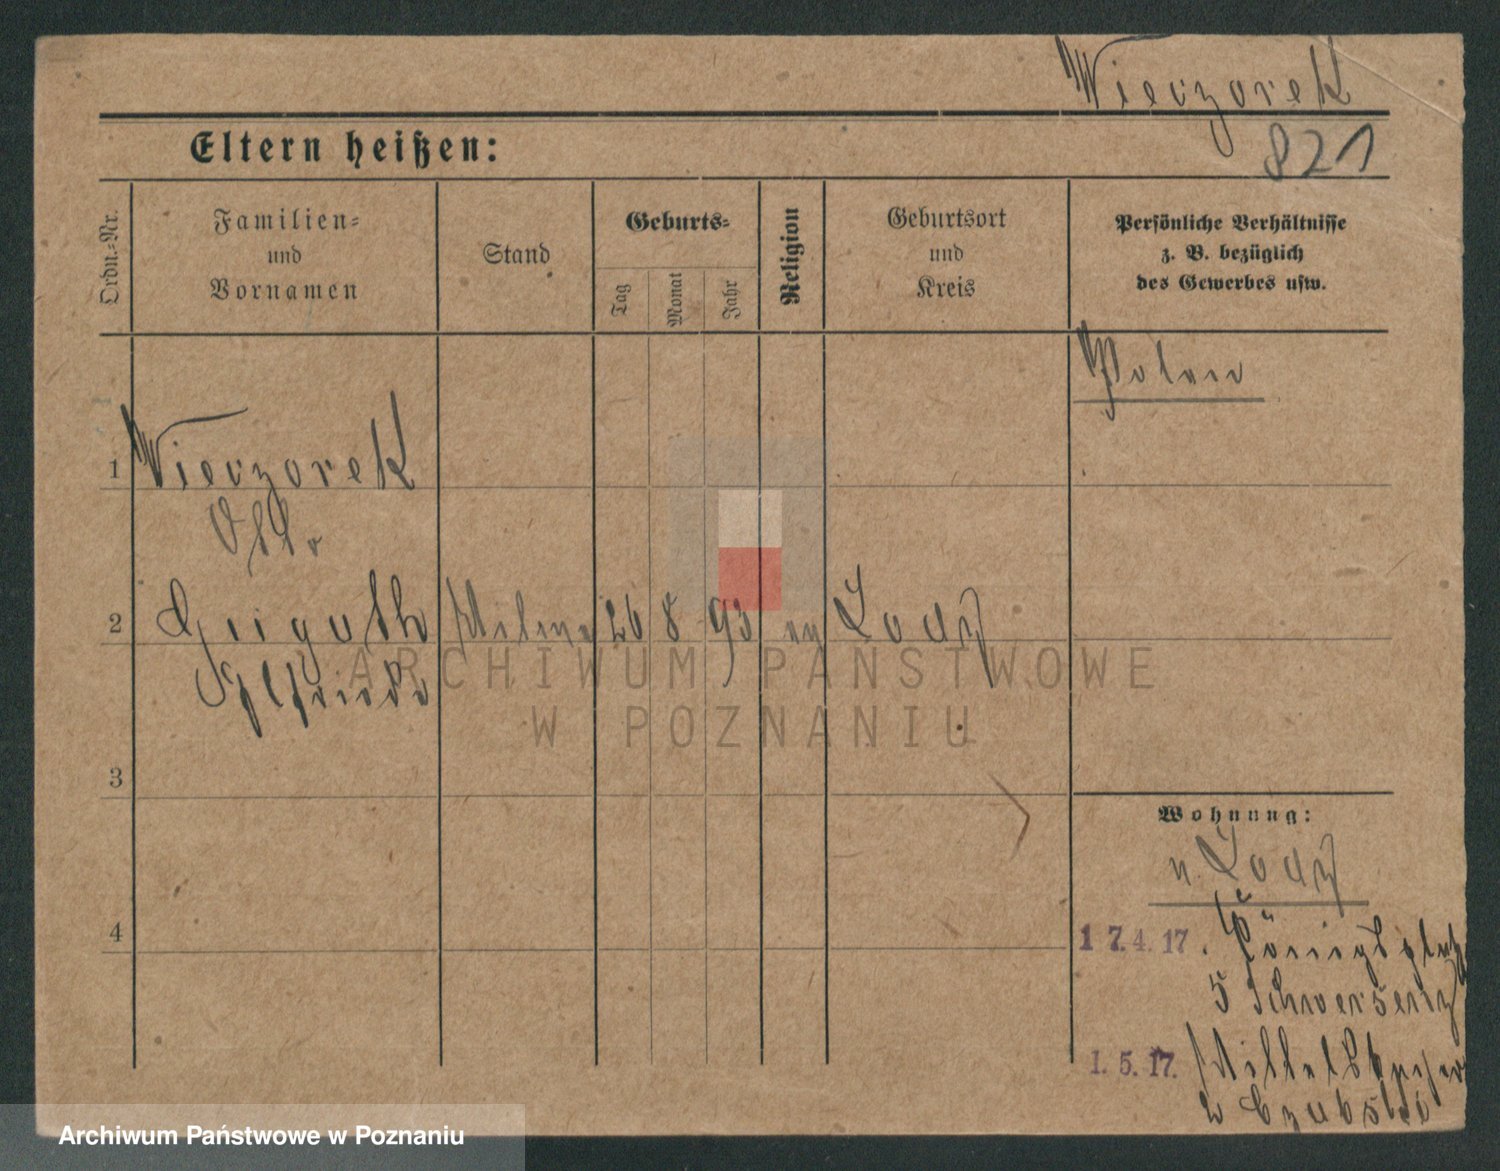 Wieczorek
821
Eltern heißen:
Ordn.-Nr.
Familien-
und
Vornamen
Stand
Geburts-
Tag
Monat
Jahr
Religion
Geburtsort
und
Kreis
Persönliche Verhältnisse
z. B. bezüglich
des Gewerbes usw.
Polen
1 Wieczorek
Otto
2 26 8 93 Lodz
ARCHIWUM PAŃSTWOWE
W POZNANIU
3
Wohnung:
n. Lodz
4
17.4.17. Königsplatz
5 Schwersenz
1.5.17.
2
Archiwum Państwowe w Poznaniu